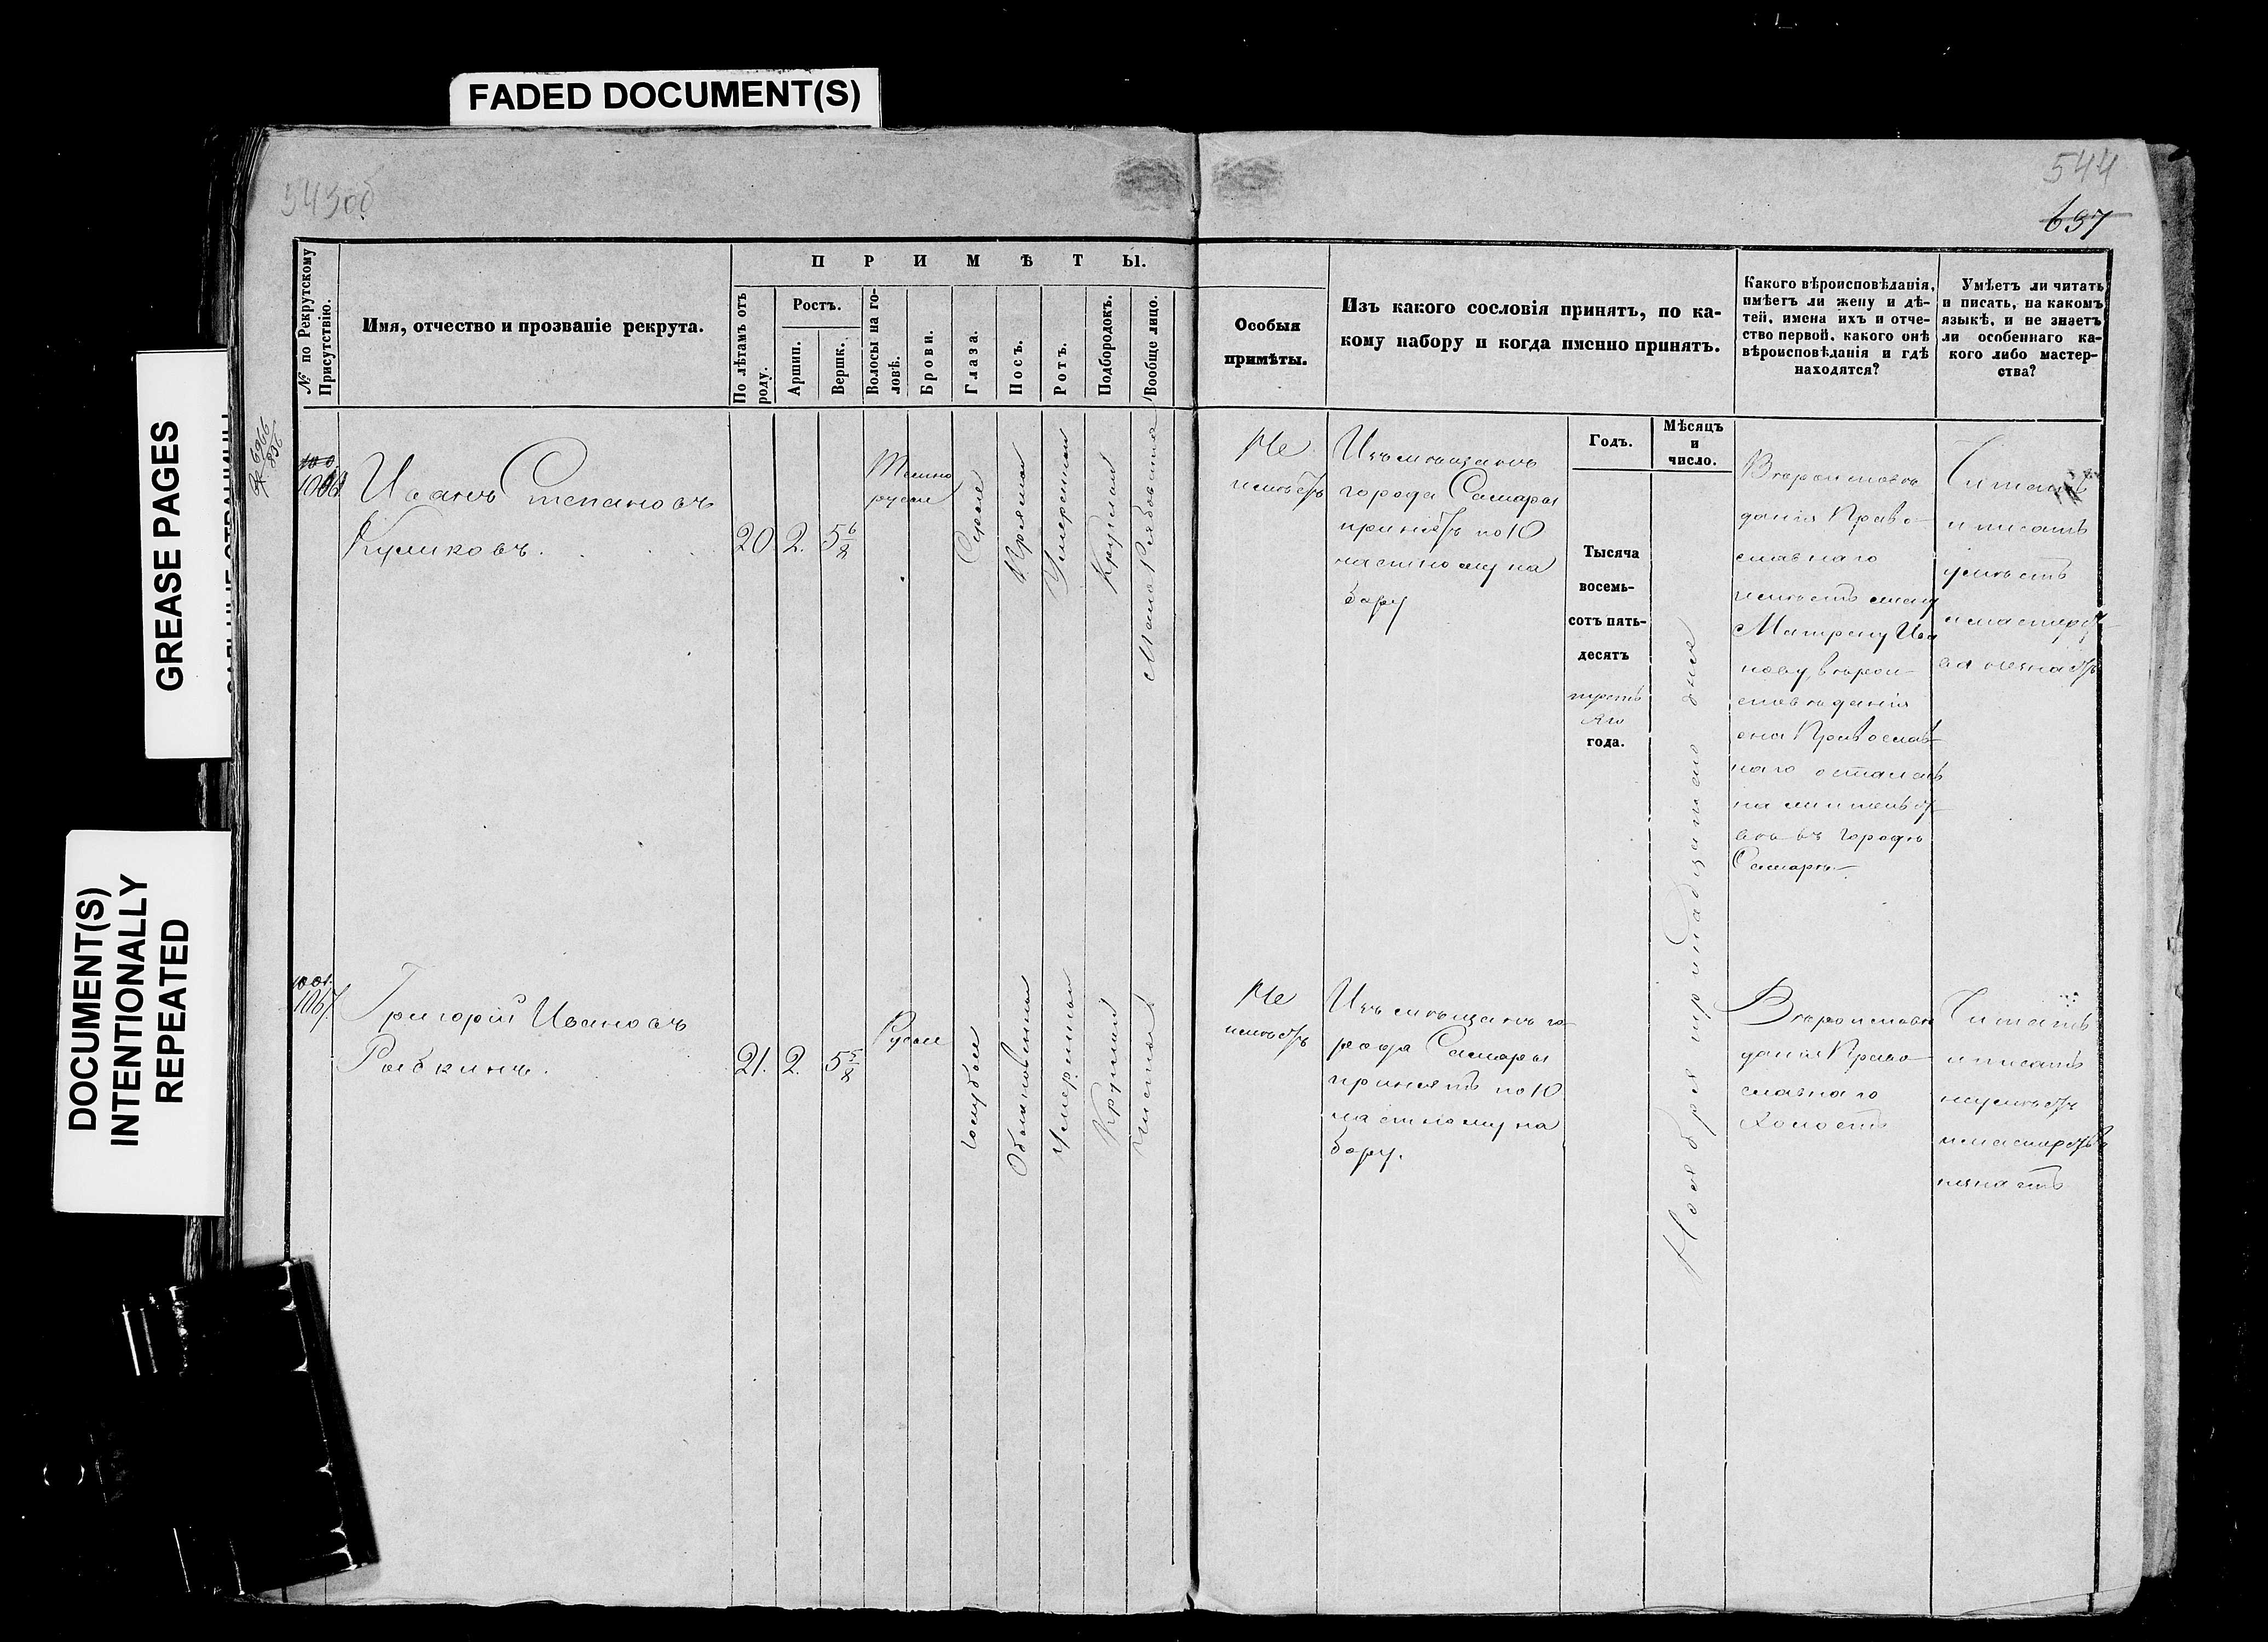 FADED DOCUMENT(S)
GREASE PAGES
DOCUMENT(S)
INTENTIONALLY
REPEATED
543об
544
637
№ по Рекрутскому
Присутствію.
Имя, отчество и прозваніе рекрута.
ПРИМѢТЫ.
По лѣтамъ отъ
роду.
Ростъ.
Аршин.
Вершк.
Волосы на го-
ловѣ.
Брови.
Глаза.
Носъ.
Ротъ.
Подбородокъ.
Вообще лицо.
Особыя
примѣты.
Изъ какого сословія принятъ, по ка-
кому набору и когда именно принятъ.
Какого вѣроисповѣданія,
имѣетъ ли жену и дѣ-
тей, имена ихъ и отче-
ство первой, какого онѣ
вѣроисповѣданія и гдѣ
находятся?
Умѣетъ ли читать
и писать, на какомъ
языкѣ, и не знаетъ
ли особеннаго ка-
кого либо мастер-
ства?
Годъ.
Мѣсяцъ
и
число.
Тысяча
восемь-
сотъ пять-
десятъ
треть
яго
года.
Ноября тринадцатаго дня
1066
Иванъ Степановъ
Куликовъ.
20
2.
5 6/8
Темно
русые
Серые
Прямой
Умеренный
Круглый
Мало Рябоватое
Не
имѣетъ
Изъ мѣщанъ
города Самары
принятъ по 10
частному на
бору
Вѣроисповѣ
данія Право
славнаго
имѣетъ жену
Матрену Ива
нову, вѣрои
сповѣданія
она Православ
наго осталась
на жительст
вѣ въ городѣ
Самарѣ
Читать
и писать
умѣетъ
и мастерст
ва незнаетъ
1067.
Григорій Ивановъ
Рыбкинъ.
21.
2.
5 5/8
Русые
Голубые
Обыкновенный
Умеренный
Круглый
Чистое
Не
имѣетъ
Изъ мѣщанъ го
рода Самары
принятъ по 10
частному на
бору.
Вѣроисповѣ
данія Право
славнаго
Холостъ
Читать
и писать
неумѣетъ
и мастерства
незнаетъ